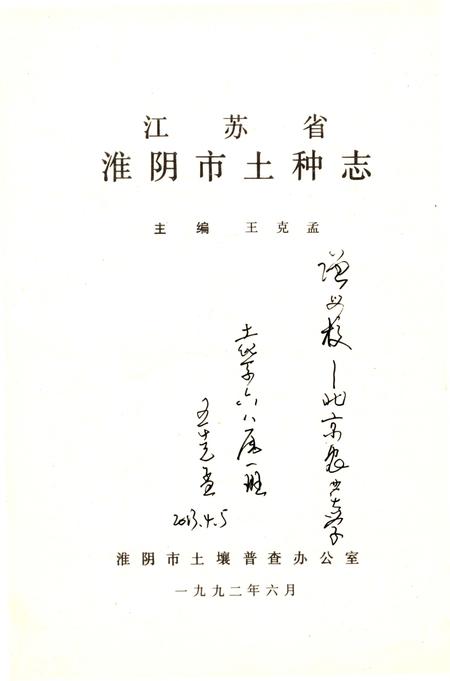 江苏省
淮阴市土种志
主编 王克孟
赠母校
—北京农业大学
土化系六八届一班
王克孟
2013.4.5
淮阴市土壤普查办公室
一九九二年六月